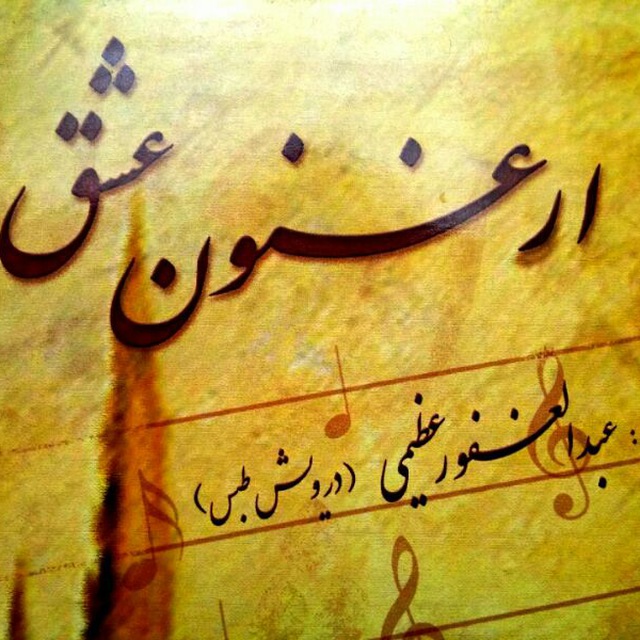 ارغنون عشق
: عبدالغفور عظیمی (درویش طبس)